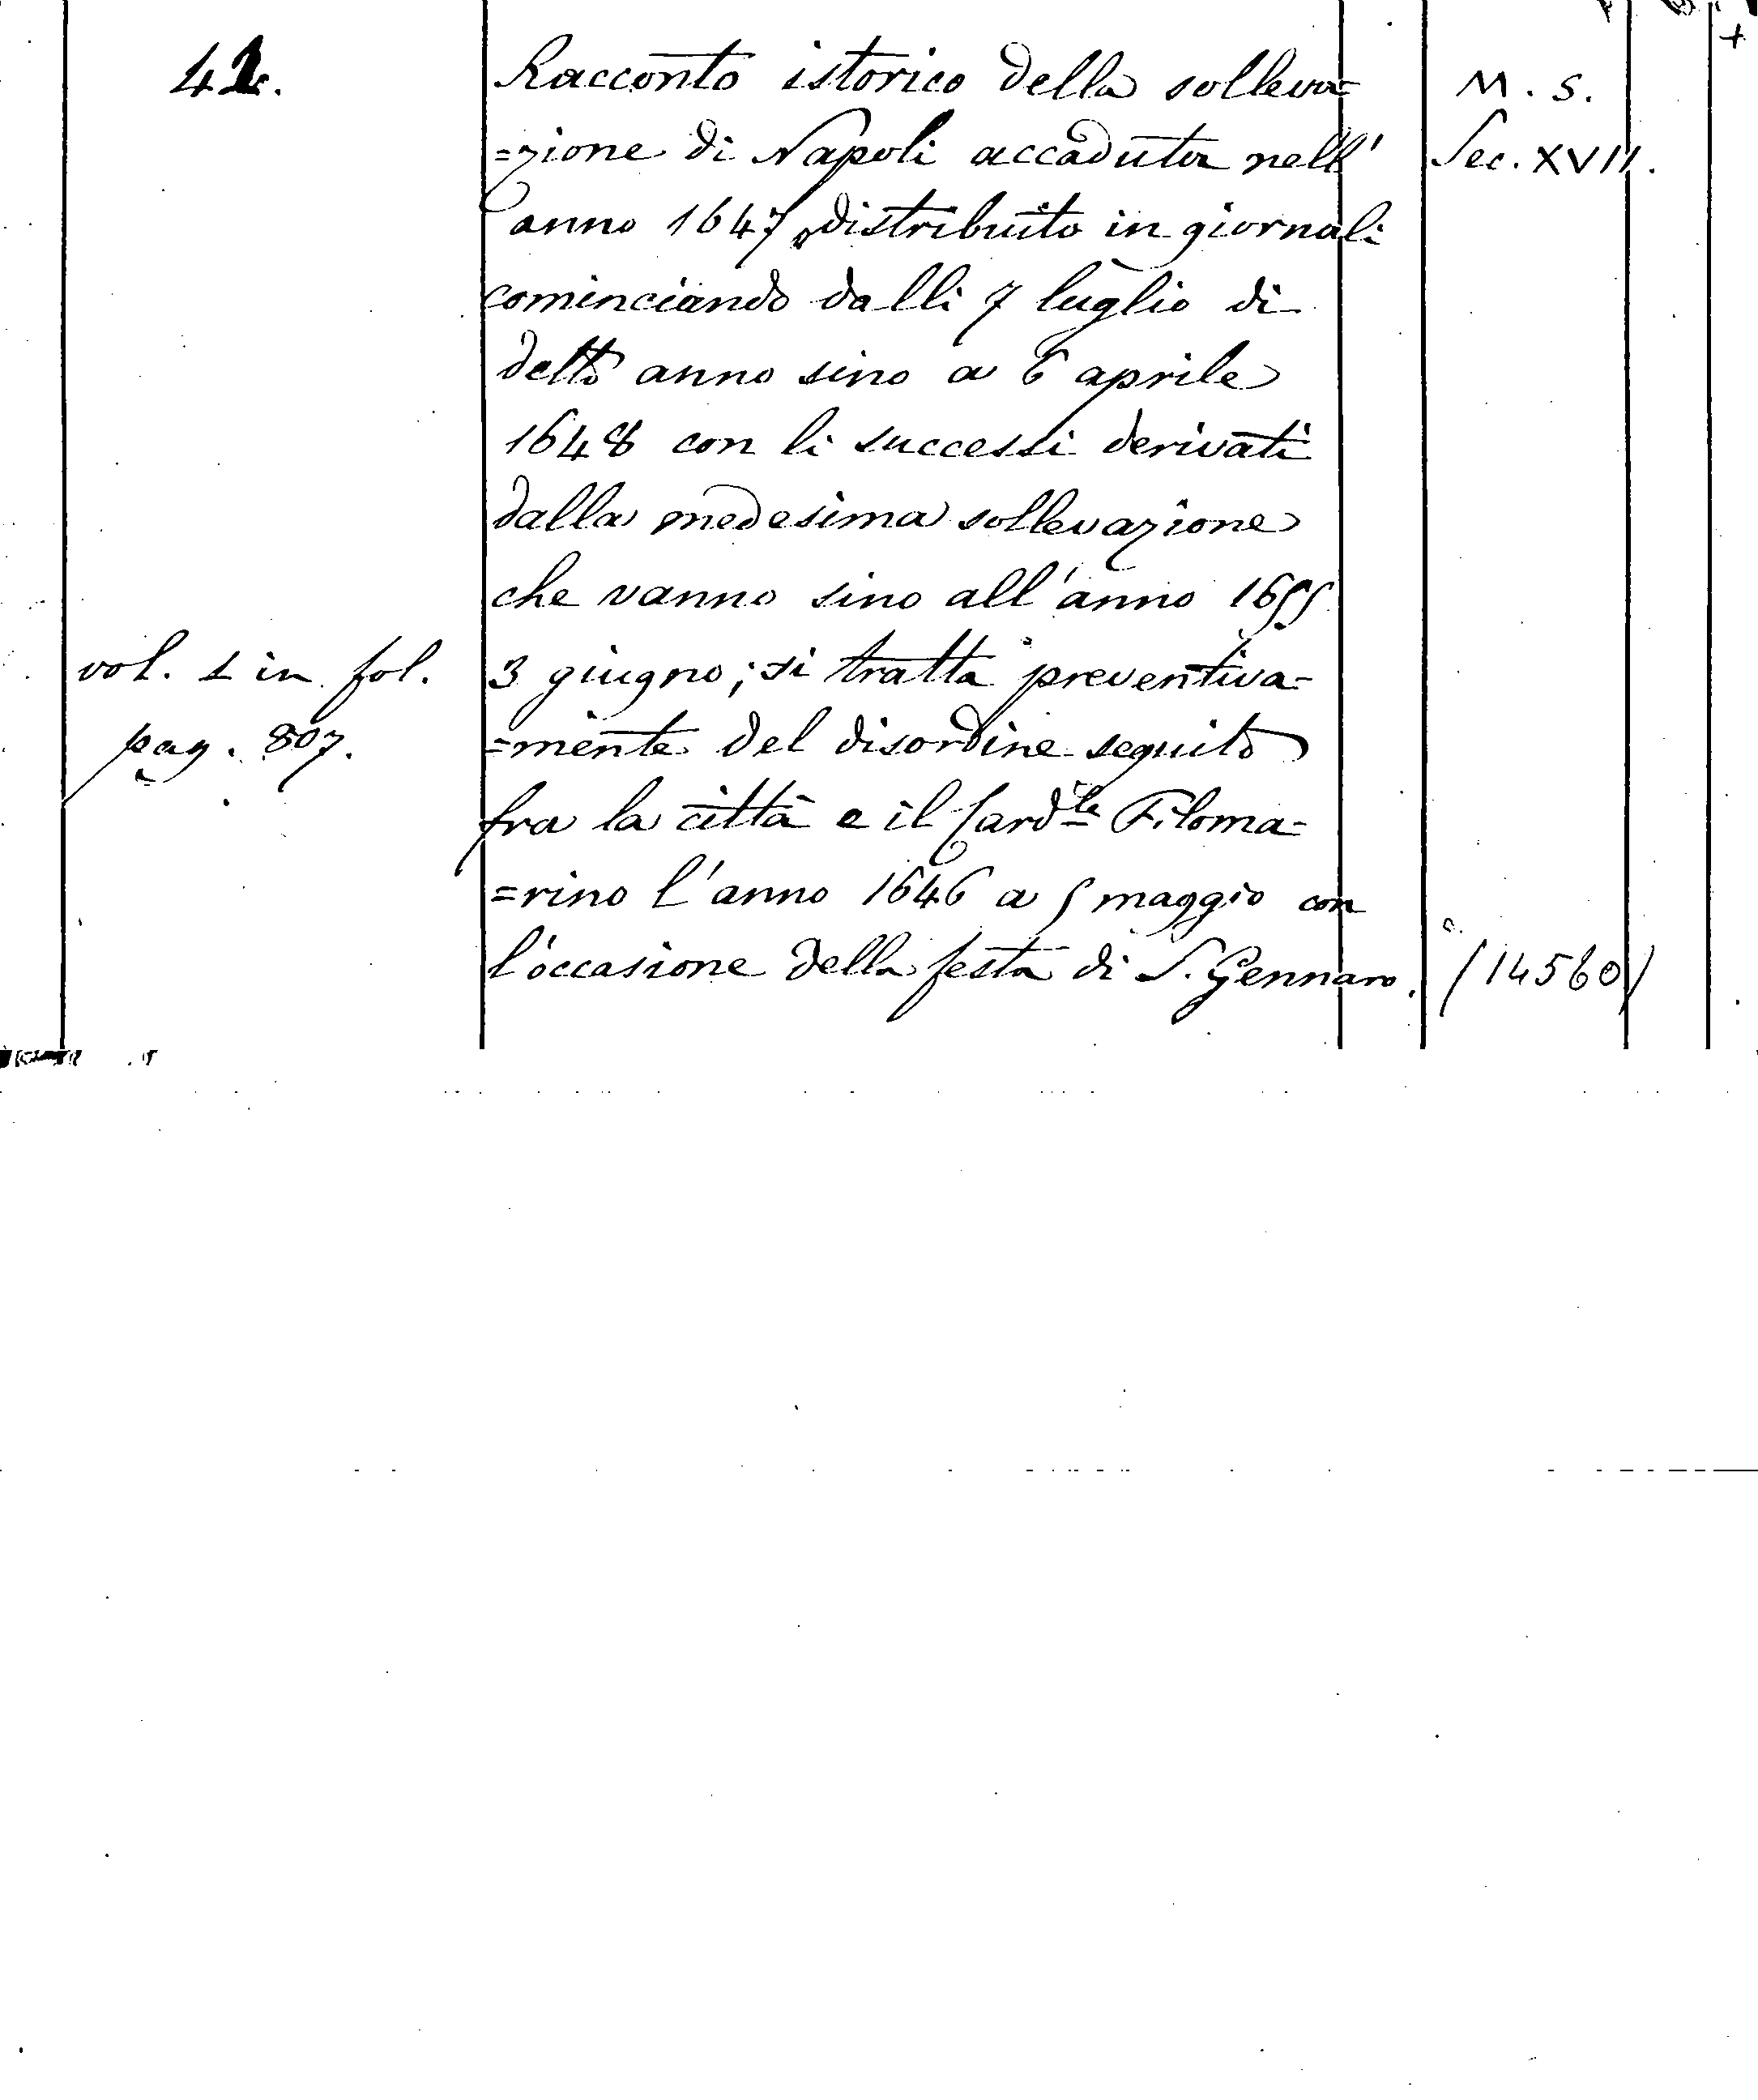 42.
Racconto istorico della solleva=
=zione di Napoli accaduta nell'
anno 1647, distribuito in giornali
cominciando dalli 7 luglio di
detto anno sino a 6 aprile
1648 con li successi derivati
dalla medesima sollevazione
che vanno sino all'anno 1655
3 giugno; si tratta preventiva=
=mente del disordine seguito
fra la città e il Card.le Filoma=
=rino l'anno 1646 a 5 maggio con
l'occasione della festa di S. Gennaro.
vol. 1 in fol.
pag. 807.
M. S.
Sec. XVII.
(14560)